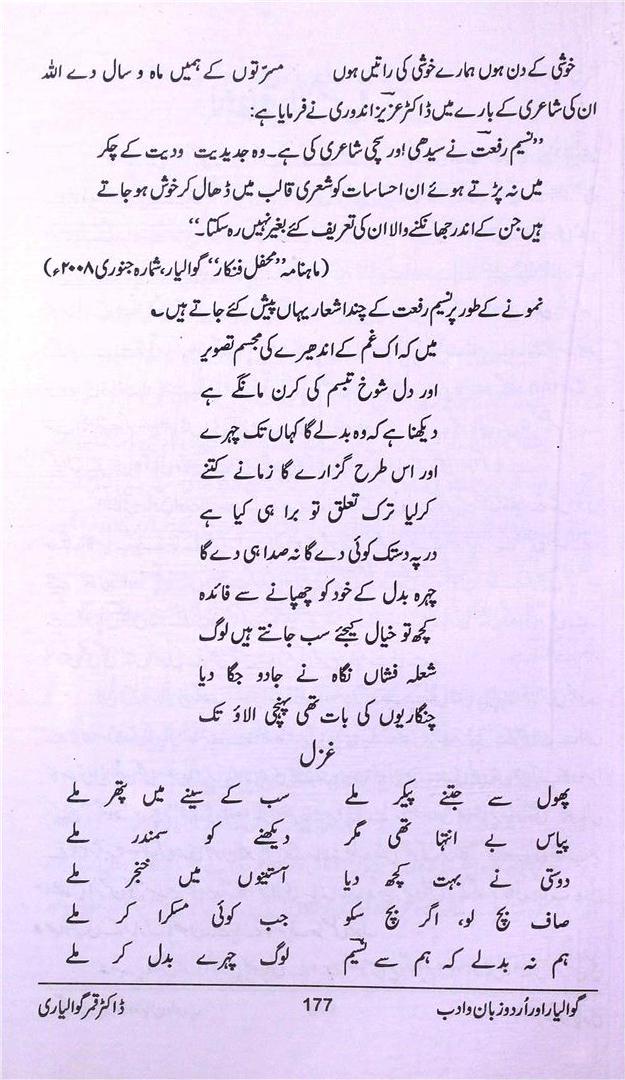 خوشی کے دن ہوں ہمارے خوشی کی راتیں ہوں مسرّتوں کے ہمیں ماہ و سال دے اللہ
ان کی شاعری کے بارے میں ڈاکٹر عزیز اندوری نے فرمایا ہے:
”نسیم رفعت نے سیدھی اور سچی شاعری کی ہے۔ وہ جدیدیت ودیت کے چکر
میں نہ پڑتے ہوئے ان احساسات کو شعری قالب میں ڈھال کر خوش ہو جاتے
ہیں جن کے اندر جھانکنے والا ان کی تعریف کئے بغیر نہیں رہ سکتا۔“
(ماہنامہ ”محفل فنکار“ گوالیار، شمارہ جنوری ۲۰۰۸ء)
نمونے کے طور پر نسیم رفعت کے چند اشعار یہاں پیش کئے جاتے ہیں۔
میں کہ اک غم کے اندھیرے کی مجسم تصویر
اور دل شوخ تبسم کی کرن مانگے ہے
دیکھنا ہے کہ وہ بدلے گا کہاں تک چہرے
اور اس طرح گزارے گا زمانے کتنے
کر لیا ترک تعلق تو برا ہی کیا ہے
در پہ دستک کوئی دے گا نہ صدا ہی دے گا
چہرہ بدل کے خود کو چھپانے سے فائدہ
کچھ تو خیال کیجئے سب جانتے ہیں لوگ
شعلہ فشاں نگاہ نے جادو جگا دیا
چنگاریوں کی بات تھی پہنچی الاؤ تک
غزل
پھول سے جتنے پیکر ملے سب کے سینے میں پتھر ملے
پیاس بے انتہا تھی مگر دیکھنے کو سمندر ملے
دوستی نے بہت کچھ دیا آستینوں میں خنجر ملے
صاف بچ لو، اگر بچ سکو جب کوئی مسکرا کر ملے
ہم نہ بدلے کہ ہم سے نسیم لوگ چہرے بدل کر ملے
گوالیار اور اُردو زبان و ادب 177 ڈاکٹر قمر گوالیاری